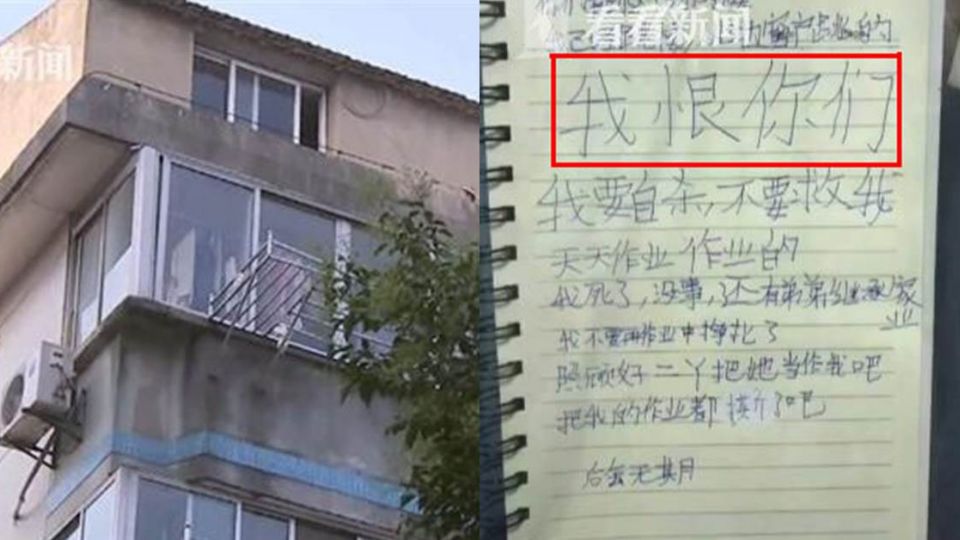 新闻
看看新闻
我恨你们
我要自杀,不要救我
天天作业 作业的
我死了,没事,还有弟弟继承家业
我不要再作业中挣扎了
照顾好二丫把她当作我吧
把我的作业都撕了吧
后会无期